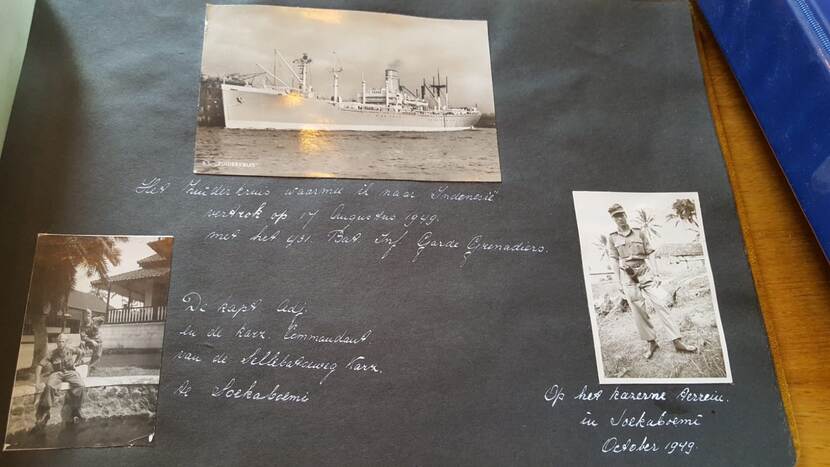 S.S. "ZUIDERKRUIS"
Het Zuiderkruis waarmee ik naar Indonesië
vertrok op 17 Augustus 1949.
met het 431. Bat. Inf. Garde Grenadiers.
De kapt. Adj.
en de karz. Commandant
van de Sellebatoeweg Karz.
te Soekaboemi
Op het kazerne terrein.
in Soekaboemi
October 1949.